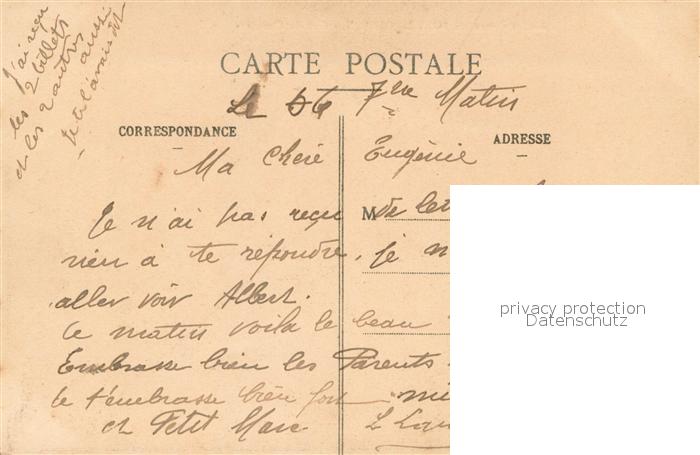 J'ai reçu
les 2 billets
et les 2 autres
aussi
je te l'avais dit
CARTE POSTALE
Le 6 7bre Matin
CORRESPONDANCE
ADRESSE
Ma Chère Eugénie
Je n'ai pas reçu M de
rien à te répondre. je
aller voir Albert.
Ce matin voila le beau
Embrasse bien les Parents
Je t'embrasse bien fort
et Petit Marc
privacy protection
Datenschutz